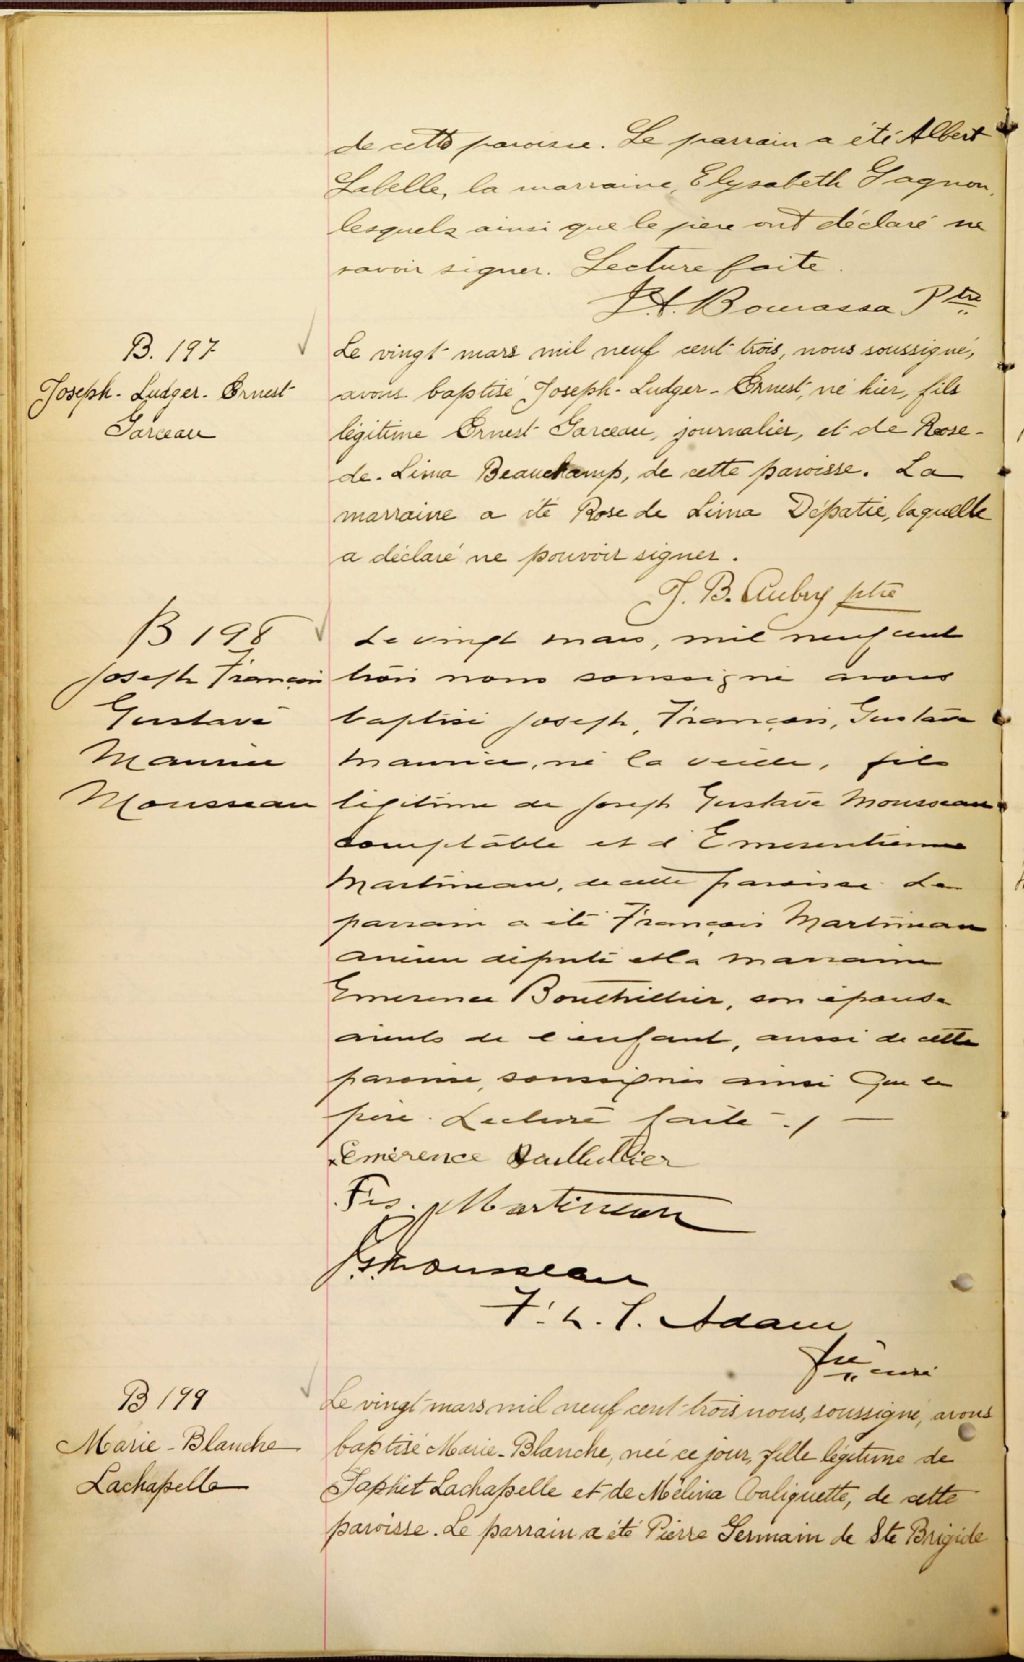 de cette paroisse. Le parrain a été Albert
Labelle, la marraine, Elysabeth Gagnon,
lesquels ainsi que le père ont déclaré ne
savoir signer. Lecture faite.
J.A. Bourassa Ptre
B. 197
Joseph-Ludger-Ernest
Garceau
Le vingt mars mil neuf cent trois, nous soussigné,
avons baptisé Joseph-Ludger-Ernest, né hier, fils
légitime Ernest Garceau, journalier, et de Rose-
de-Lima Beauchamp, de cette paroisse. La
marraine a été Rose de Lima Dépatie, laquelle
a déclaré ne pouvoir signer.
J. B. Aubry ptre
B 198
Joseph François
Gustave
Maurice
Mousseau
Le vingt mars, mil neuf cent
trois nous soussigné avons
baptisé Joseph, François, Gustave
Maurice, né la veille, fils
légitime de Joseph Gustave Mousseau
comptable et d'Emerentienne
Martineau, de cette paroisse. Le
parrain a été François Martineau
ancien député et la marraine
Emerence Bouthillier, son épouse
aieuls de l'enfant, aussi de cette
paroisse, soussignés ainsi que le
père. Lecture faite -/-
Emérence Bouthillier
Frs. Martineau
J.G. Mousseau
F. L. T. Adam
ptre curé
B 199
Marie-Blanche
Lachapelle
Le vingt mars mil neuf cent trois, nous, soussigné, avons
baptisé Marie-Blanche, née ce jour, fille légitime de
Japhet Lachapelle et de Mélina Valiquette, de cette
paroisse. Le parrain a été Pierre Germain de Ste Brigide